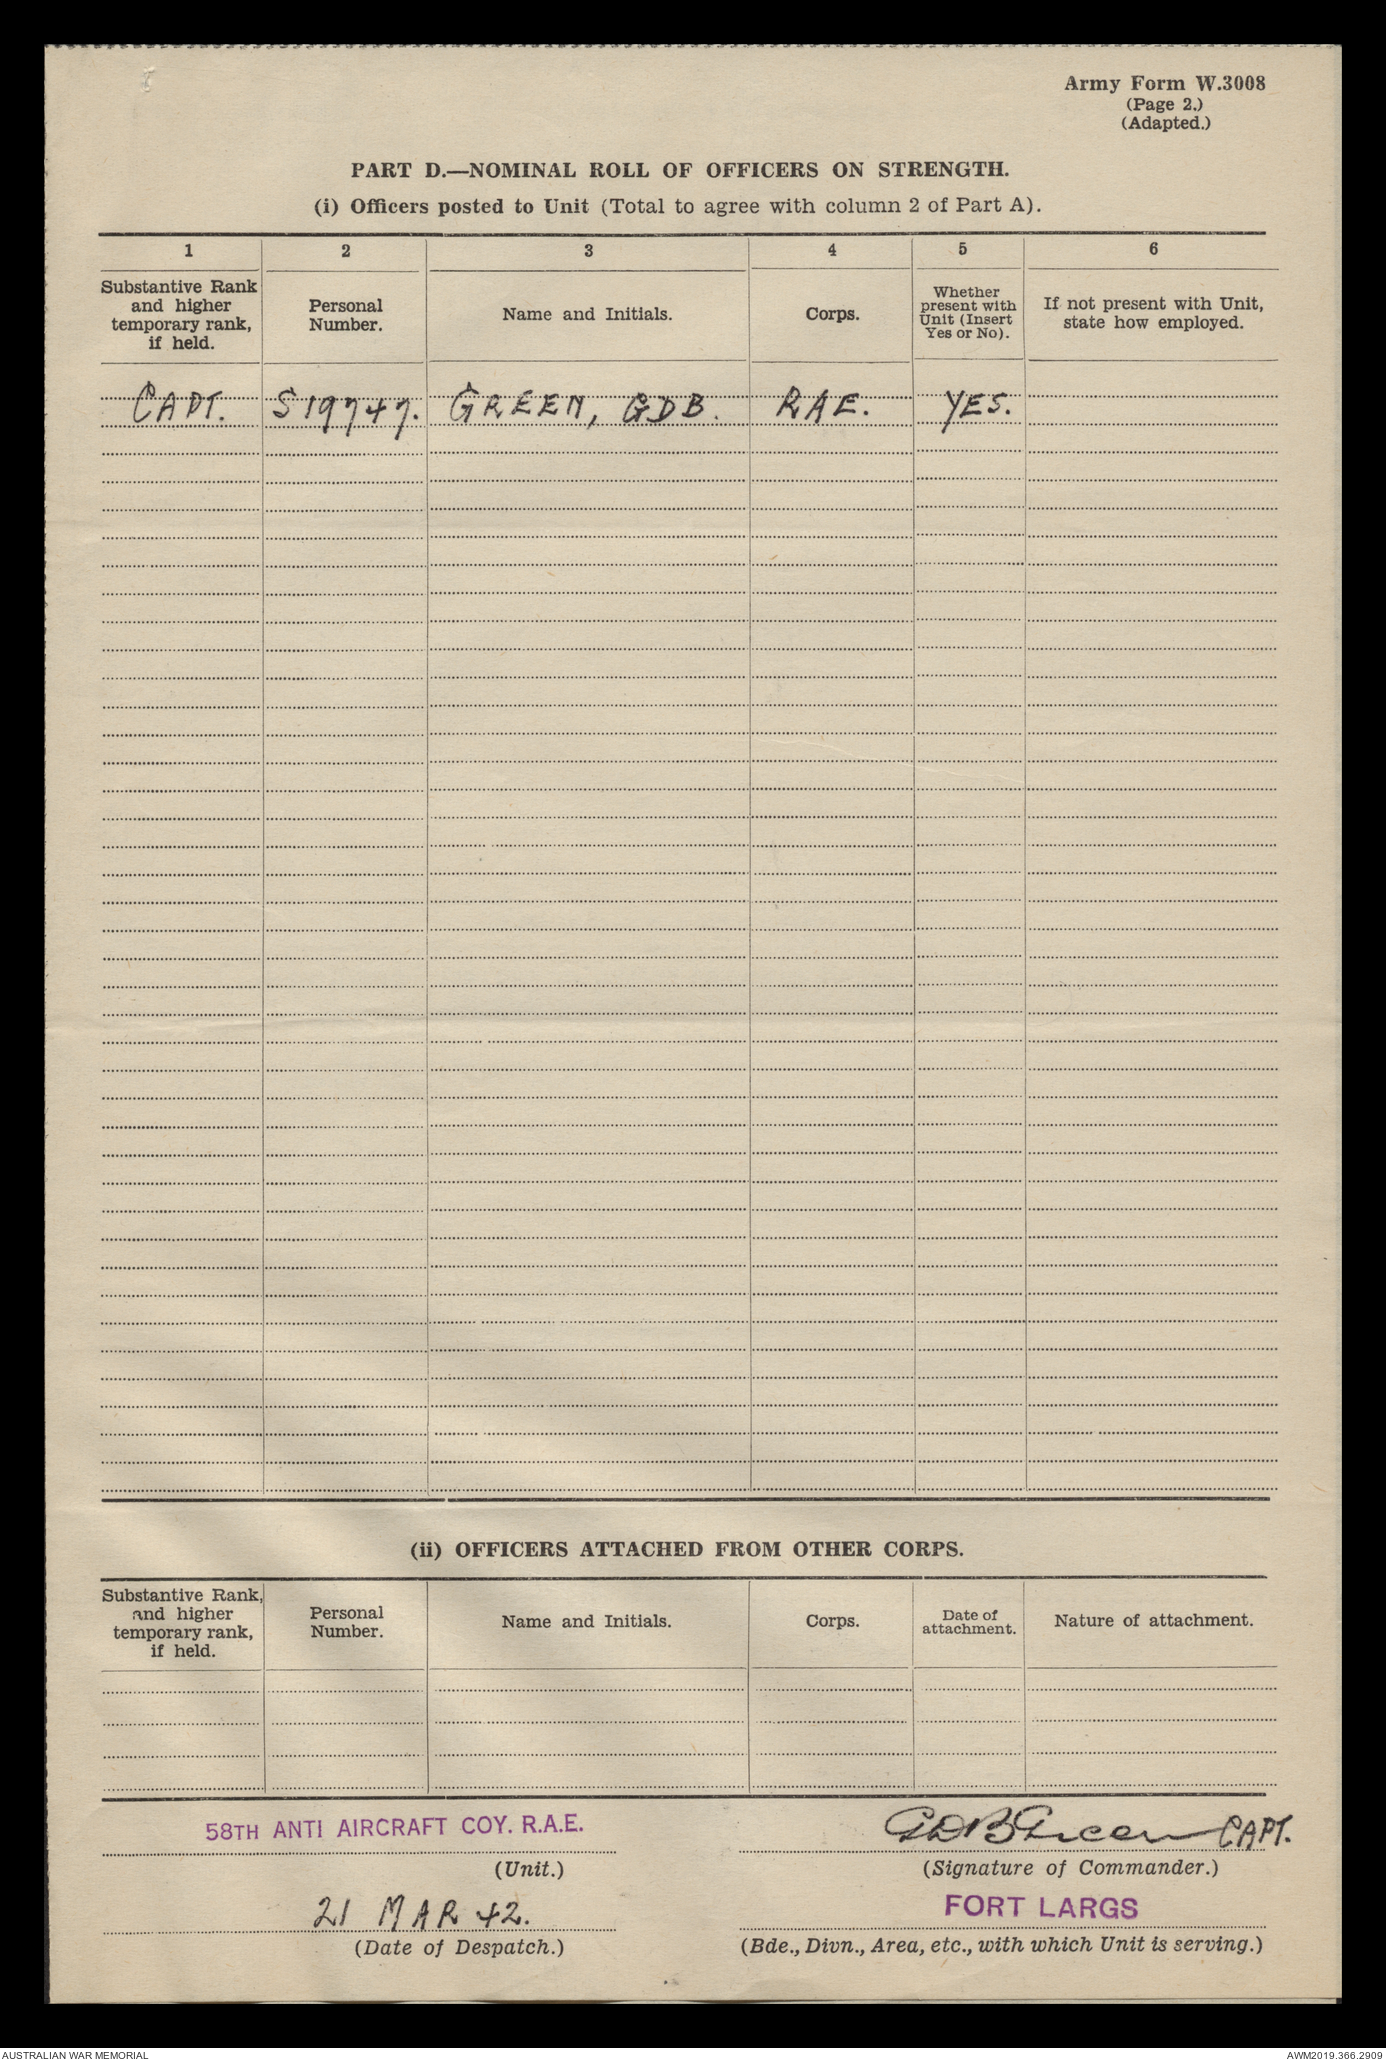 Army Form W.3008
(Page 2.)
(Adapted.)
PART D.—NOMINAL ROLL OF OFFICERS ON STRENGTH.
(i) Officers posted to Unit (Total to agree with column 2 of Part A).
1 2 3 4 5 6
Substantive Rank
and higher
temporary rank,
if held.
Personal
Number.
Name and Initials.
Corps.
Whether
present with
Unit (Insert
Yes or No).
If not present with Unit,
state how employed.
CAPT. S19747. GREEN, GDB. RAE. YES.
(ii) OFFICERS ATTACHED FROM OTHER CORPS.
Substantive Rank,
and higher
temporary rank,
if held.
Personal
Number.
Name and Initials.
Corps.
Date of
attachment.
Nature of attachment.
58TH ANTI AIRCRAFT COY. R.A.E.
(Unit.)
GDBGreen CAPT.
(Signature of Commander.)
21 MAR 42.
(Date of Despatch.)
FORT LARGS
(Bde., Divn., Area, etc., with which Unit is serving.)
AUSTRALIAN WAR MEMORIAL
AWM2019.366.2909